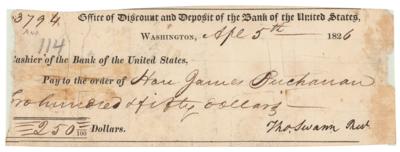 3794.
Office of Discount and Deposit of the Bank of the United States,
114
WASHINGTON, Apl 5th 1826
Cashier of the Bank of the United States.
Pay to the order of Hon James Buchanan
Two hundred & fifty Dollars
250 00/100 Dollars.
Tho Swann Prest